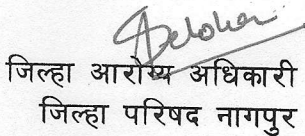 जिल्हा आरोग्य अधिकारी
जिल्हा परिषद नागपुर